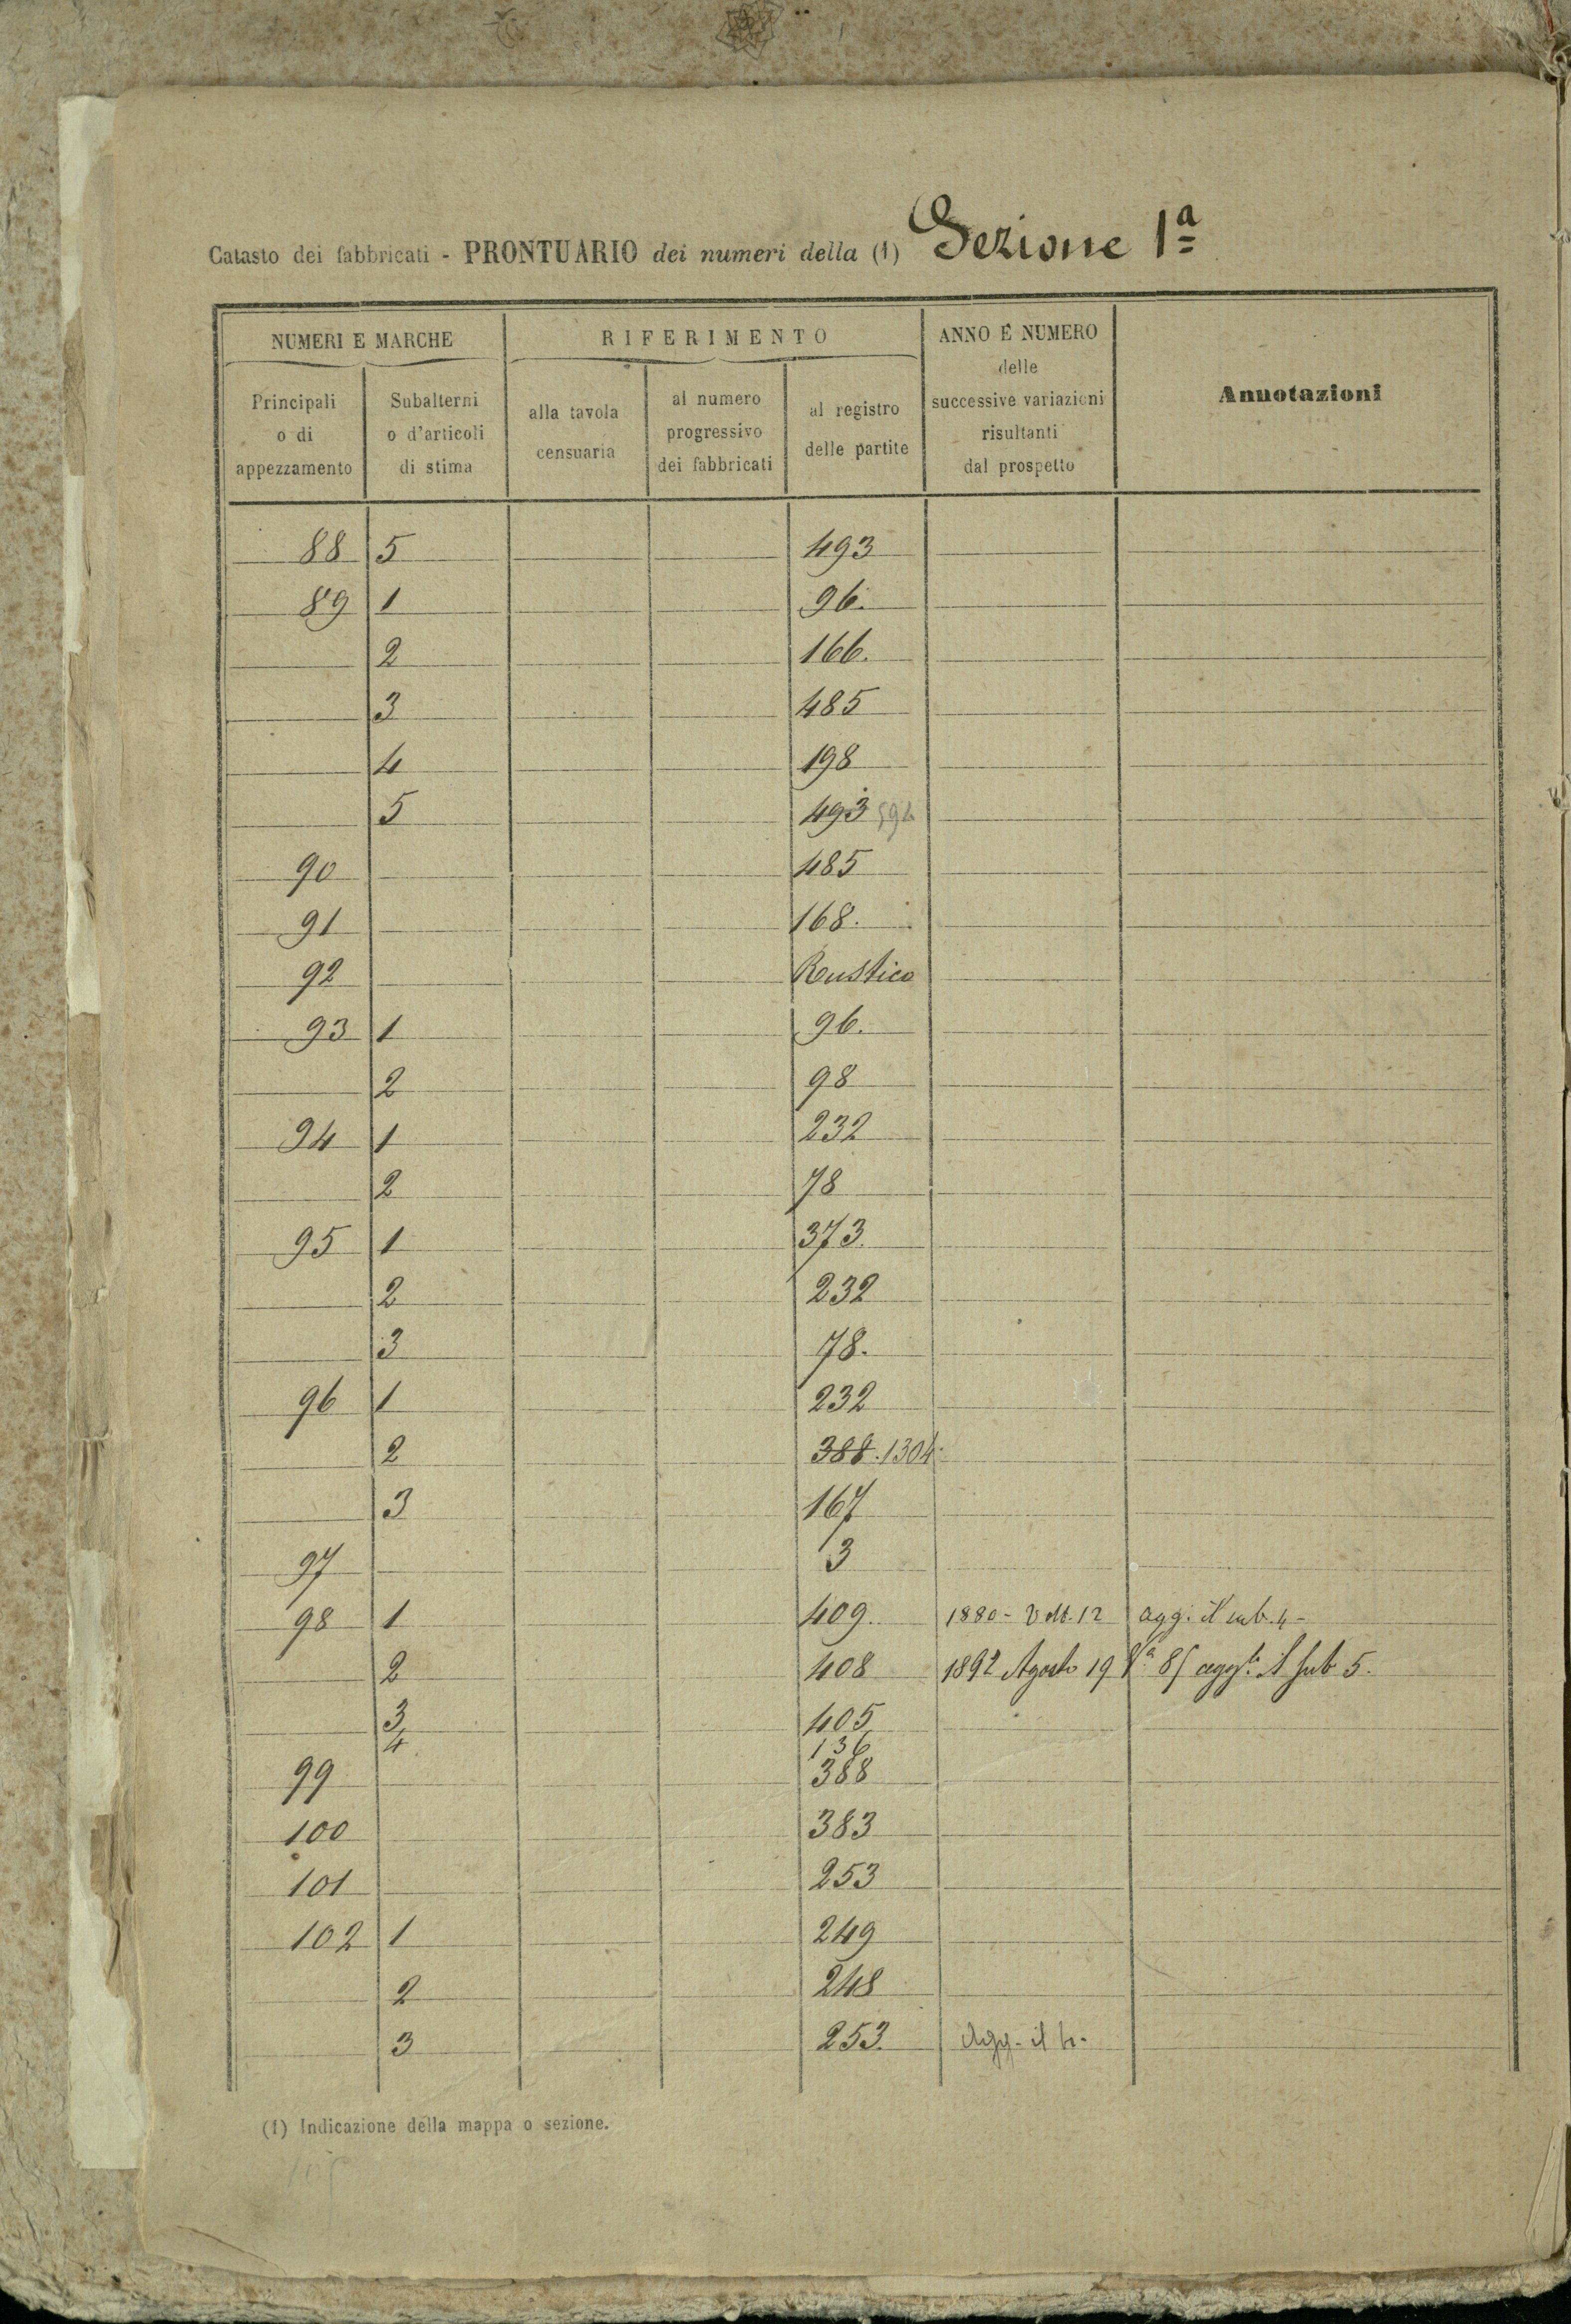 Catasto dei fabbricati - PRONTUARIO dei numeri della (1) Sezione 1ª
NUMERI E MARCHE
RIFERIMENTO
ANNO E NUMERO
delle
successive variazioni
risultanti
dal prospetto
Annotazioni
Principali
o di
appezzamento
Subalterni
o d'articoli
di stima
alla tavola
censuaria
al numero
progressivo
dei fabbricati
al registro
delle partite
88 5 493
89 1 96.
2 166.
3 485
4 198
5 493
90 485
91 168.
92 Rustico
93 1 96.
2 98
94 1 232
2 78
95 1 373.
2 232
3 78.
96 1 232
2 388. 1304
3 167
97 3
98 1 409. 1880 - 12 agg. il sub. 4 -
2 408 1892 Agosto 19 85 il sub 5.
3 405
4 136
99 388
100 383
101 253
102 1 249
2 248
3 253. Agg - il 4 -
(1) Indicazione della mappa o sezione.